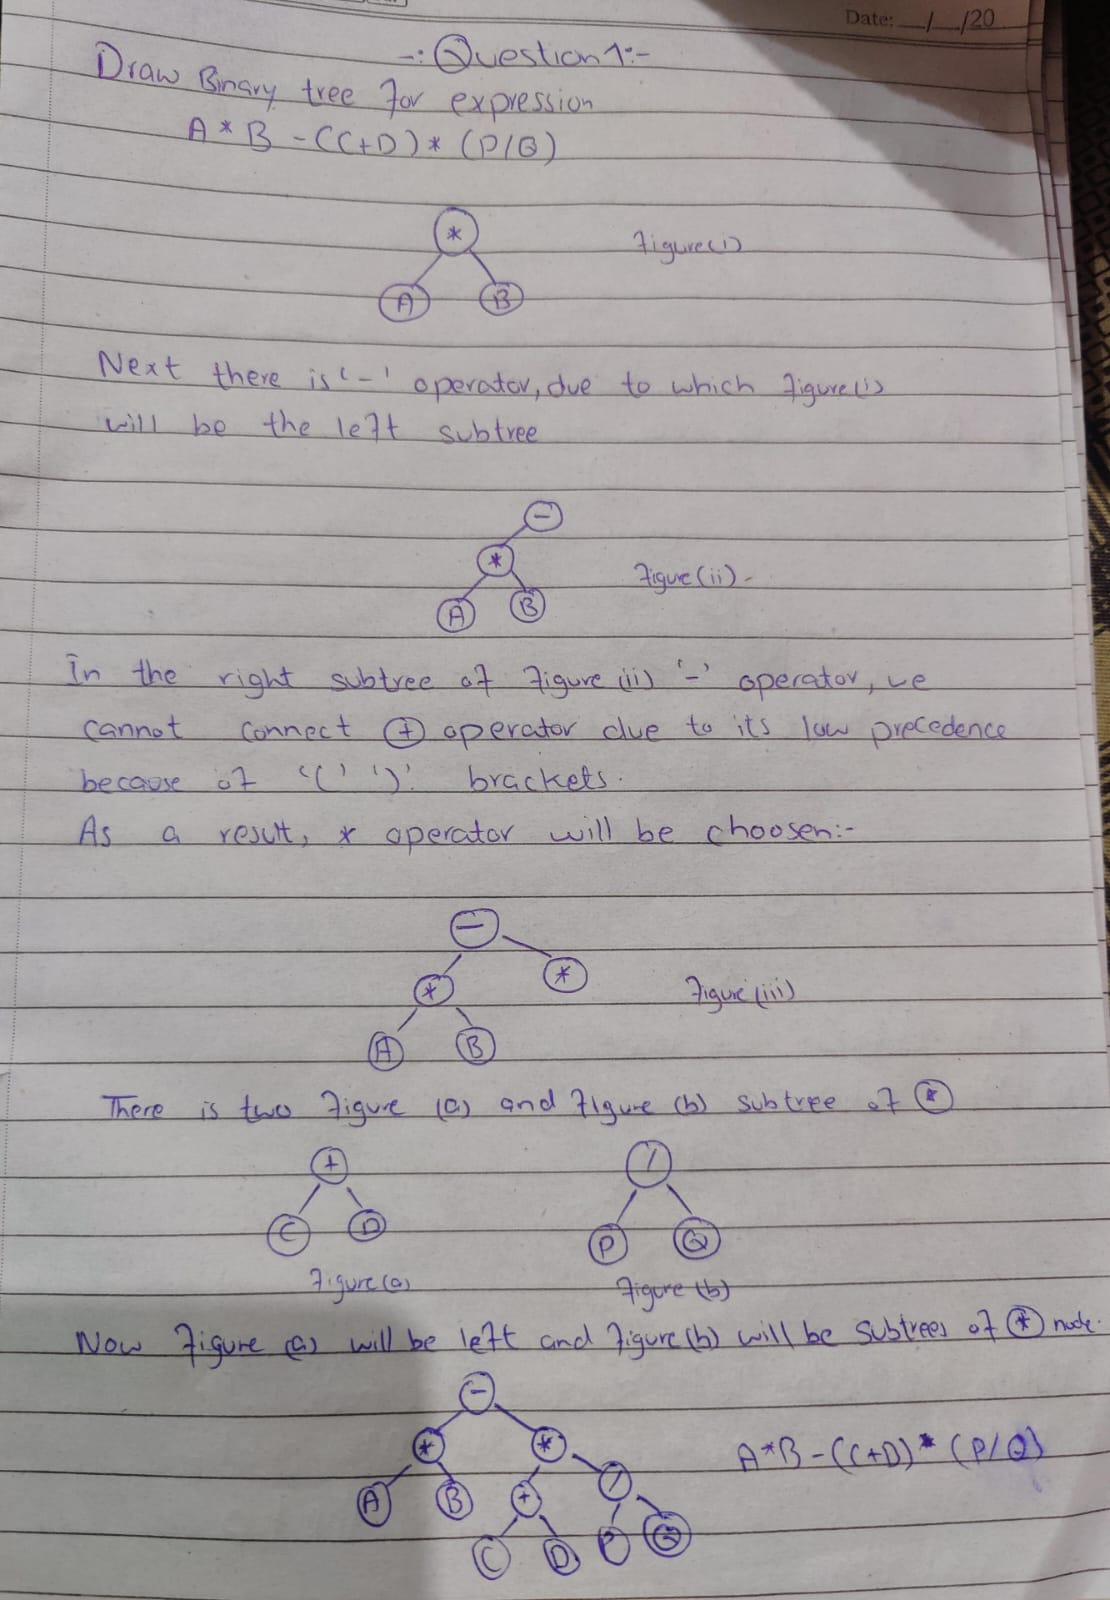 Date: __/__/20
-: Question 1:-
Draw Binary tree for expression
A * B - (C+D) * (P/Q)
*
Figure(i)
A B
Next there is '-' operator, due to which figure(i)
will be the left subtree
-
*
Figure(ii)-
A B
In the right subtree of figure (ii) '-' operator, we
cannot connect + operator due to its low precedence
because of '(' ')' brackets.
As a result, * operator will be choosen:-
-
* *
Figure (iii)
A B
There is two figure (a) and figure (b) subtree of *
+ /
C D P Q
Figure(a) Figure (b)
Now figure (a) will be left and figure(b) will be subtrees of * node.
-
* *
A*B-(C+D)*(P/Q)
A B + /
C D P Q